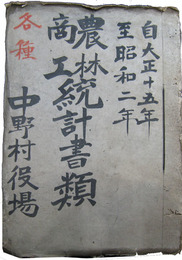 自大正十五年
至昭和二年
農林
商工統計書類
各種
中野村役場